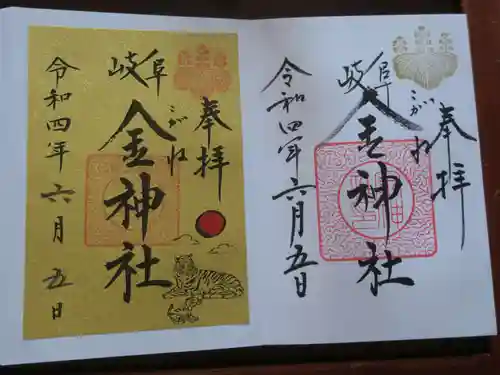 奉拝
岐阜
こがね
金神社
令和四年六月五日
奉拝
岐阜
こがね
金神社
令和四年六月五日